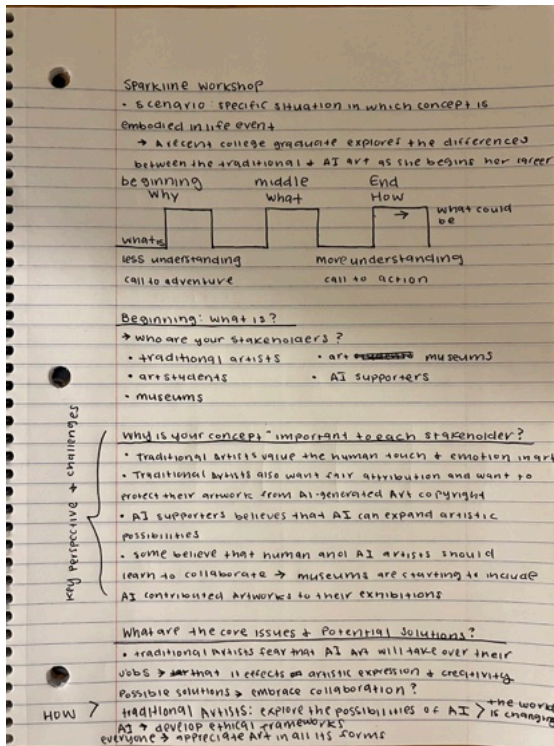 Sparkline Workshop
• scenario: specific situation in which concept is
embodied in life event
→ A recent college graduate explores the differences
between the traditional + AI art as she begins her career
beginning middle End
Why What How
what is → what could
be
less understanding more understanding
call to adventure call to action
Beginning: what is?
→ who are your stakeholders?
• traditional artists • art museums
• art students • AI supporters
• museums
key perspective + challenges
Why is your concept important to each stakeholder?
• Traditional Artists value the human touch + emotion in art
• Traditional Artists also want fair attribution and want to
protect their artwork from AI-generated Art copyright
• AI supporters believes that AI can expand artistic
possibilities
• some believe that human and AI artists should
learn to collaborate → museums are starting to include
AI contributed Artworks to their exhibitions
What are the core issues + Potential solutions?
• traditional Artists fear that AI Art will take over their
jobs > that it effects artistic expression + creativity
Possible solutions > embrace collaboration?
HOW > traditional Artists: explore the possibilities of AI > the world
is changing
AI → develop ethical frameworks
everyone → appreciate Art in all its forms